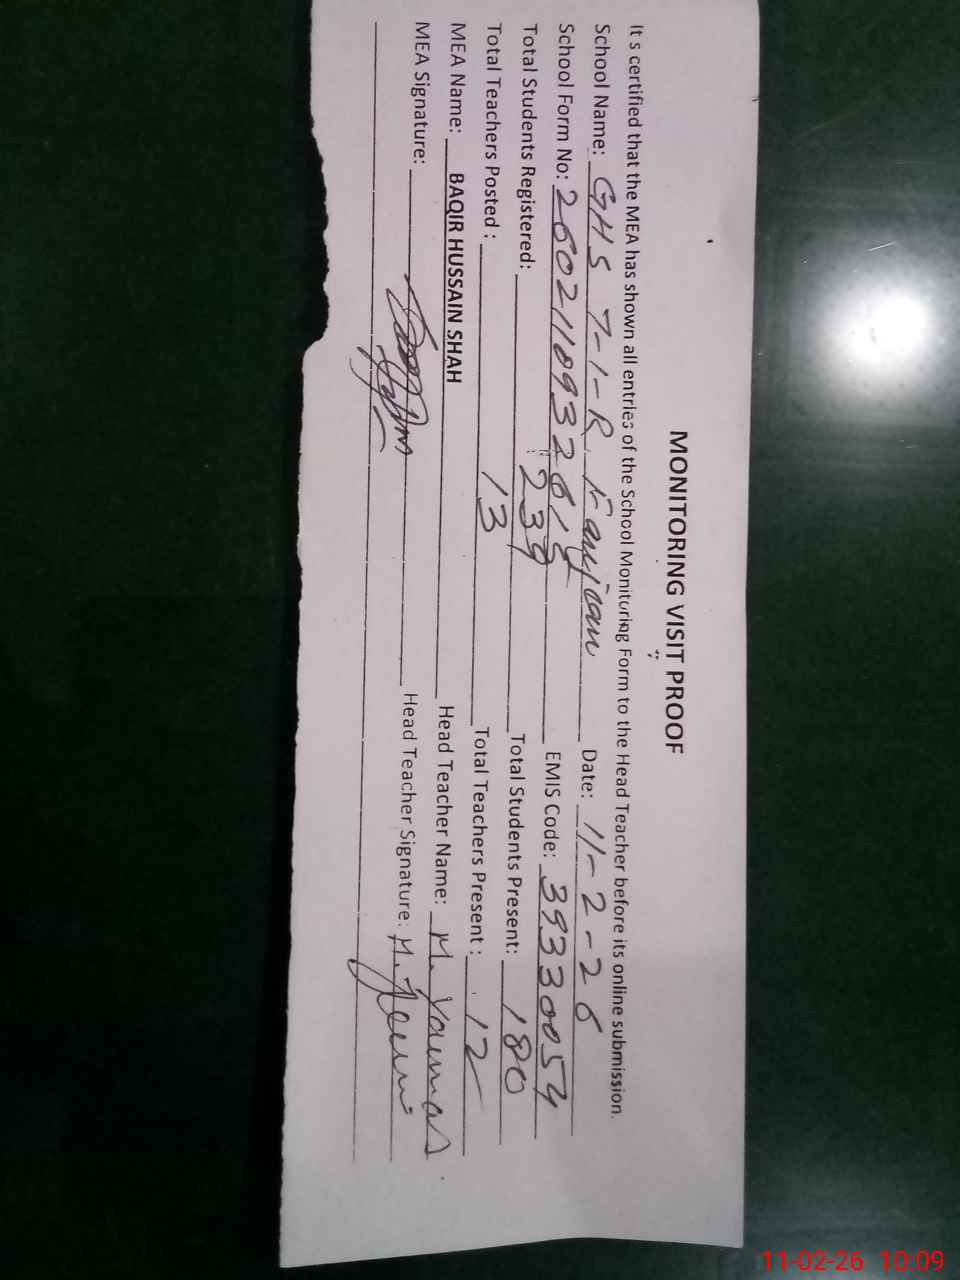 MONITORING VISIT PROOF
It s certified that the MEA has shown all entries of the School Monitoring Form to the Head Teacher before its online submission.
School Name: GHS 7-1-R Faujian Date: 11-2-26
School Form No: EMIS Code: 39330054
Total Students Registered: 239 Total Students Present: 180
Total Teachers Posted : 13 Total Teachers Present : 12
MEA Name: BAQIR HUSSAIN SHAH Head Teacher Name: M. Younas
MEA Signature: Head Teacher Signature: M.
11-02-26 10:09